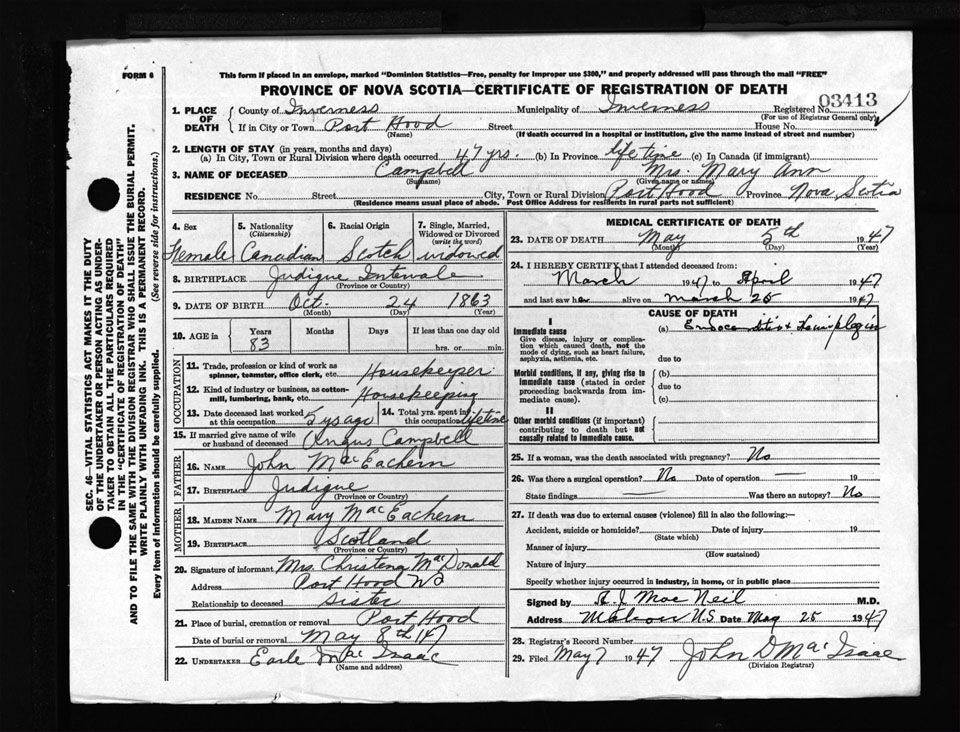 FORM 6
This form if placed in an envelope, marked "Dominion Statistics—Free, penalty for improper use $300," and properly addressed will pass through the mail "FREE"
PROVINCE OF NOVA SCOTIA—CERTIFICATE OF REGISTRATION OF DEATH
03413
1. PLACE OF DEATH County of Inverness Municipality of Inverness Registered No.
(For use of Registrar General only)
If in City or Town Port Hood Street House No.
(Name) (If death occurred in a hospital or institution, give the name instead of street and number)
2. LENGTH OF STAY (in years, months and days)
(a) In City, Town or Rural Division where death occurred 47 yrs. (b) In Province life time (c) In Canada (if immigrant)
3. NAME OF DECEASED Campbell Mrs. Mary Ann
(Surname) (Given name or names)
RESIDENCE No. Street City, Town or Rural Division Port Hood Province Nova Scotia
(Residence means usual place of abode. Post Office Address for residents in rural parts not sufficient)
4. Sex Female
5. Nationality (Citizenship) Canadian
6. Racial Origin Scotch
7. Single, Married, Widowed or Divorced (write the word) widowed
8. BIRTHPLACE Judique Intervale
(Province or Country)
9. DATE OF BIRTH Oct. 24 1863
(Month) (Day) (Year)
10. AGE in Years Months Days If less than one day old
83 hrs. or min.
OCCUPATION
11. Trade, profession or kind of work as spinner, teamster, office clerk, etc. Housekeeper
12. Kind of industry or business, as cotton-mill, lumbering, bank, etc. Housekeeping
13. Date deceased last worked at this occupation 5 yrs ago
14. Total yrs. spent in this occupation lifetime
15. If married give name of wife or husband of deceased Angus Campbell
FATHER
16. NAME John MacEachern
17. BIRTHPLACE Judique
(Province or Country)
MOTHER
18. MAIDEN NAME Mary MacEachern
19. BIRTHPLACE Scotland
(Province or Country)
20. Signature of informant Mrs. Christena McDonald
Address Port Hood NS
Relationship to deceased Sister
21. Place of burial, cremation or removal Port Hood
Date of burial or removal May 8th 47
22. UNDERTAKER Earle Mac Isaac
(Name and address)
MEDICAL CERTIFICATE OF DEATH
23. DATE OF DEATH May 5th 1947
(Month) (Day) (Year)
24. I HEREBY CERTIFY that I attended deceased from:
March 1947 to April 1947
and last saw her alive on March 25 1947
CAUSE OF DEATH
I
Immediate cause (a)
Give disease, injury or complication which caused death, not the mode of dying, such as heart failure, asphyxia, asthenia, etc.
due to
Morbid conditions, if any, giving rise to immediate cause (stated in order proceeding backwards from immediate cause).
(b)
due to
(c)
II
Other morbid conditions (if important) contributing to death but not causally related to immediate cause.
25. If a woman, was the death associated with pregnancy? No
26. Was there a surgical operation? No Date of operation — 19
State findings — Was there an autopsy? No
27. If death was due to external causes (violence) fill in also the following:—
Accident, suicide or homicide? Date of injury 19
(State which)
Manner of injury
(How sustained)
Nature of injury
Specify whether injury occurred in industry, in home, or in public place
Signed by A. J. Mac Neil M.D.
Address U.S. Date May 25 1947
28. Registrar's Record Number
29. Filed May 7 1947 John D MacIsaac
(Division Registrar)
SEC. 46—VITAL STATISTICS ACT MAKES IT THE DUTY
OF THE UNDERTAKER OR PERSON ACTING AS UNDER-
TAKER TO OBTAIN ALL THE PARTICULARS REQUIRED
IN THE "CERTIFICATE OF REGISTRATION OF DEATH"
AND TO FILE THE SAME WITH THE DIVISION REGISTRAR WHO SHALL ISSUE THE BURIAL PERMIT.
WRITE PLAINLY WITH UNFADING INK. THIS IS A PERMANENT RECORD.
Every item of information should be carefully supplied. (See reverse side for instructions.)